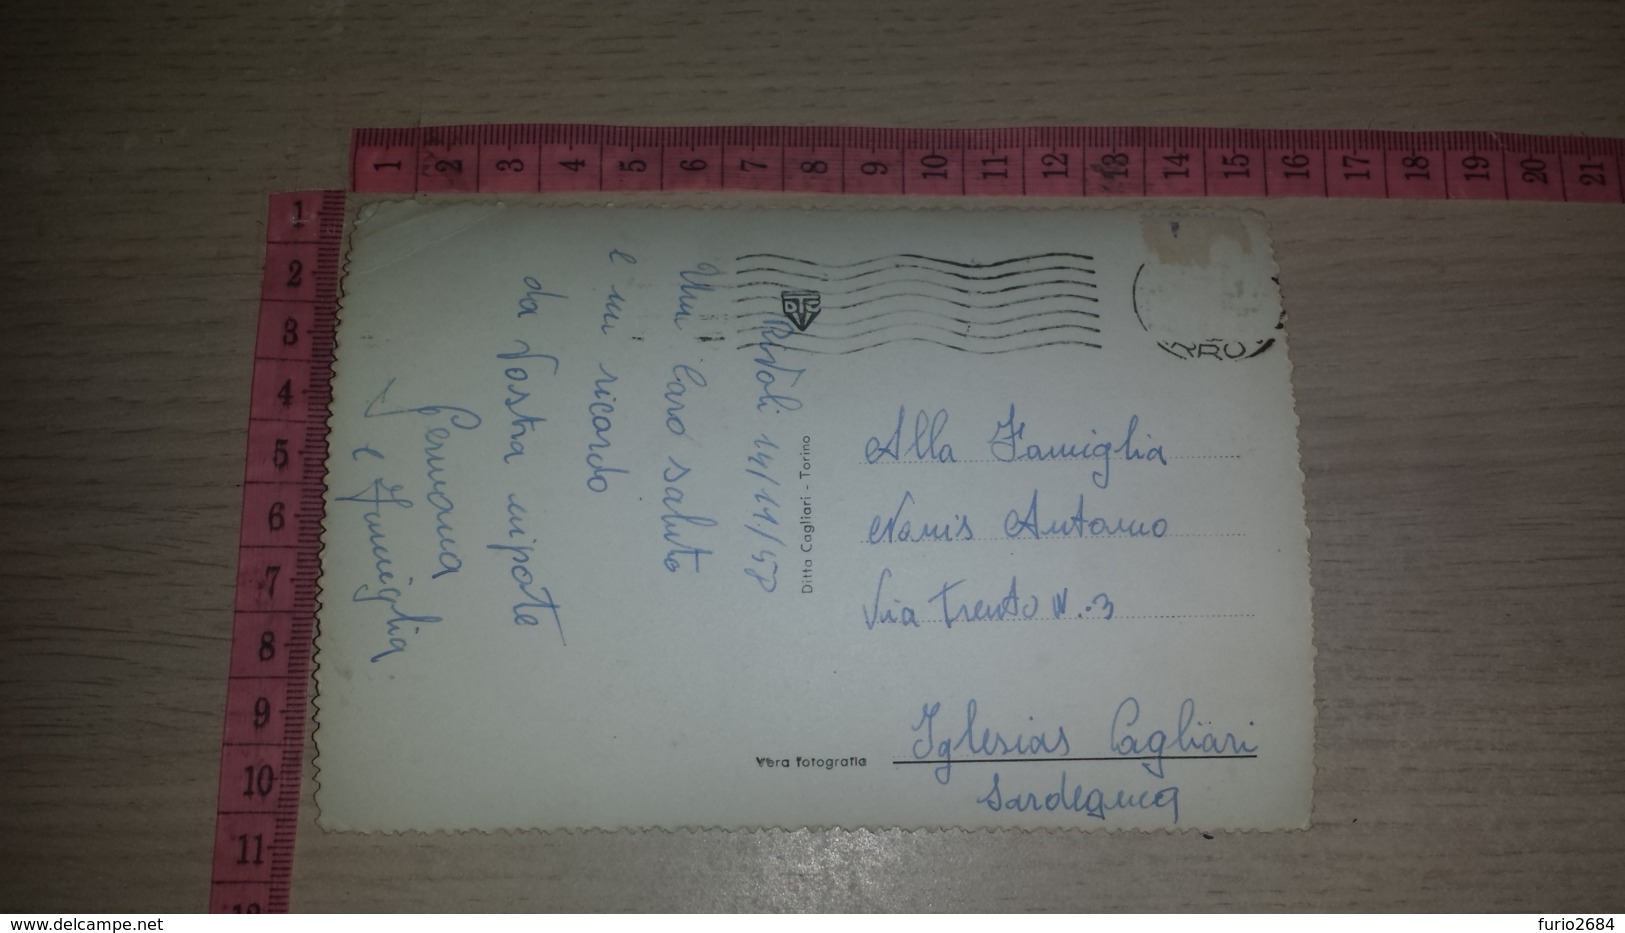 Rivoli 14/11/58
Un Caro saluto
e un ricordo
da Vostra nipote
Germana
e Famiglia
Ditta Cagliari - Torino
Alla Famiglia
Nonis Antonio
Via Trento N.:3
Iglesias Cagliari
Sardegna
Vera fotografia
1 2 3 4 5 6 7 8 9 10 11 12 13 14 15 16 17 18 19 20 21
1
2
3
4
5
6
7
8
9
10
11
12
www.delcampe.net
furio2684